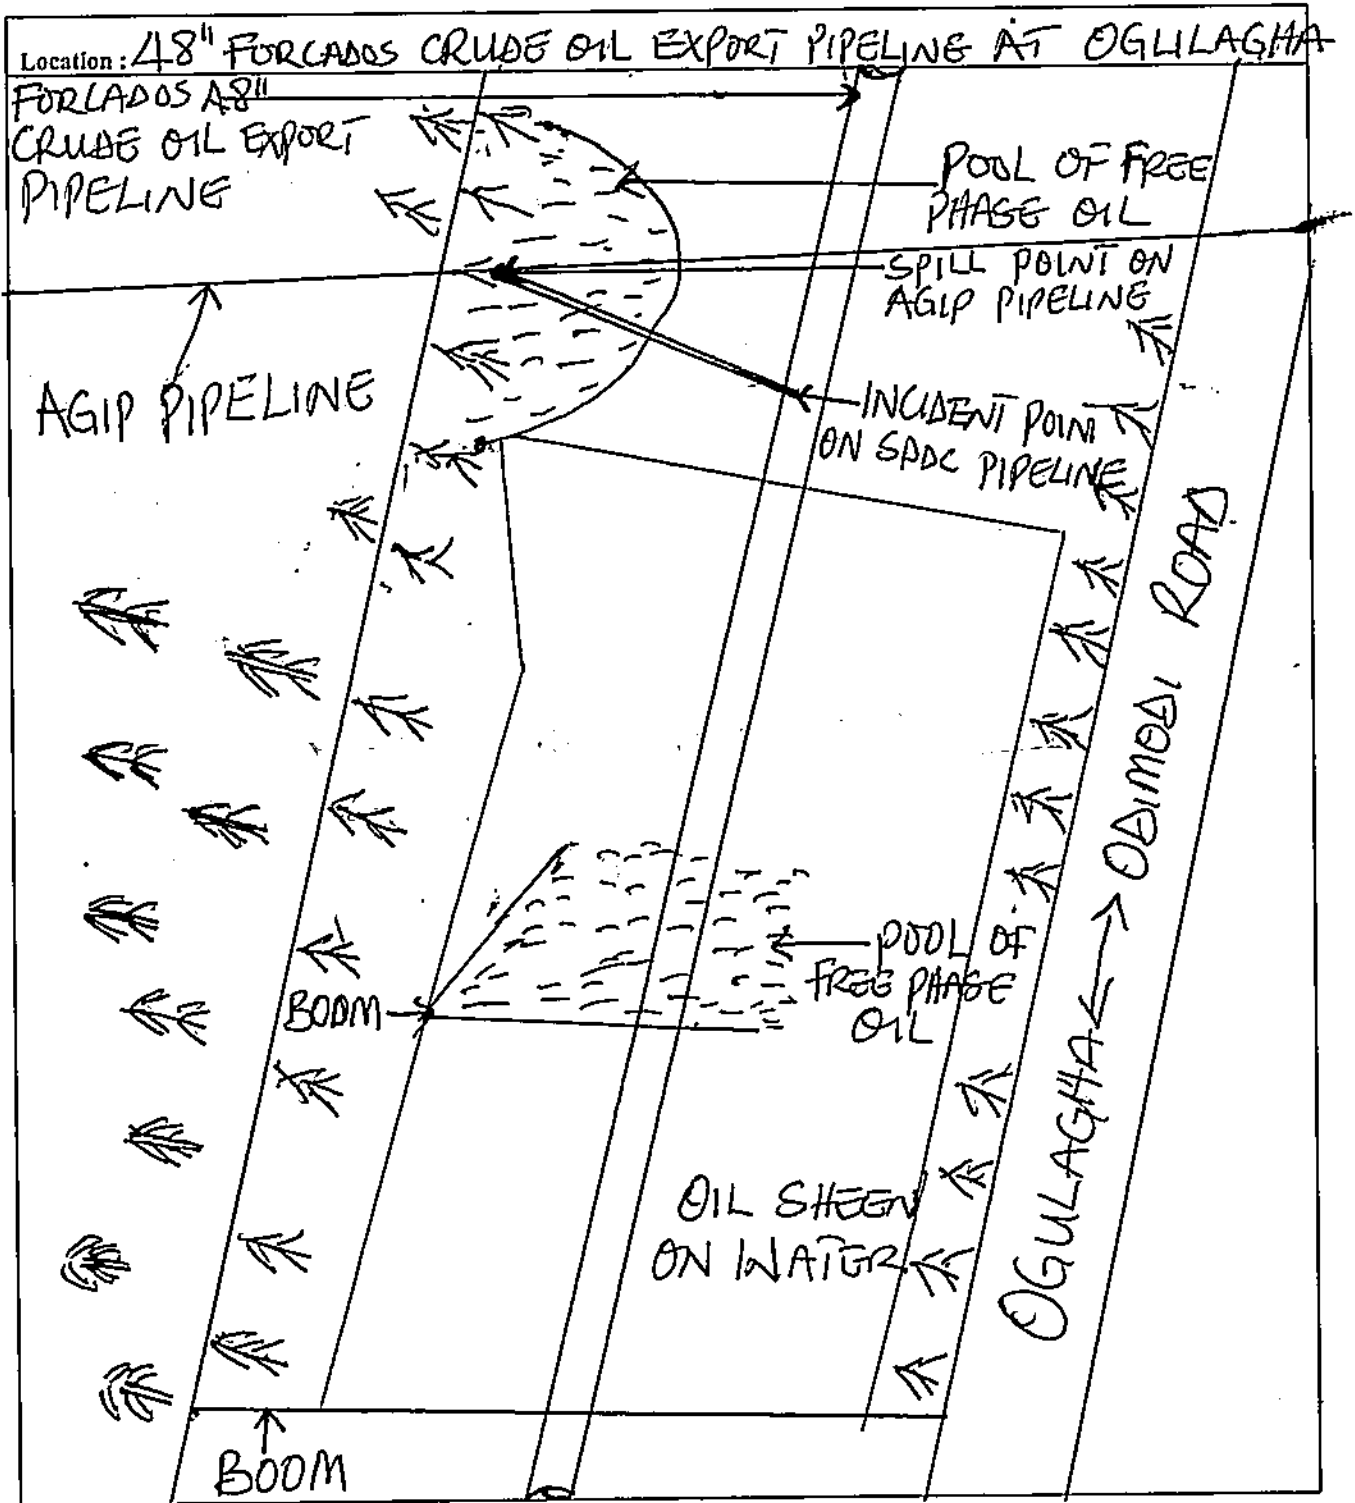 Location: 48" FORCADOS CRUDE OIL EXPORT PIPELINE AT OGULAGHA
FORCADOS 48"
CRUDE OIL EXPORT
PIPELINE
POOL OF FREE
PHASE OIL
SPILL POINT ON
AGIP PIPELINE
AGIP PIPELINE
INCIDENT POINT
ON SPDC PIPELINE
ODIMODI ROAD
BOOM
POOL OF
FREE PHASE
OIL
OGULAGHA
OIL SHEEN
ON WATER
BOOM